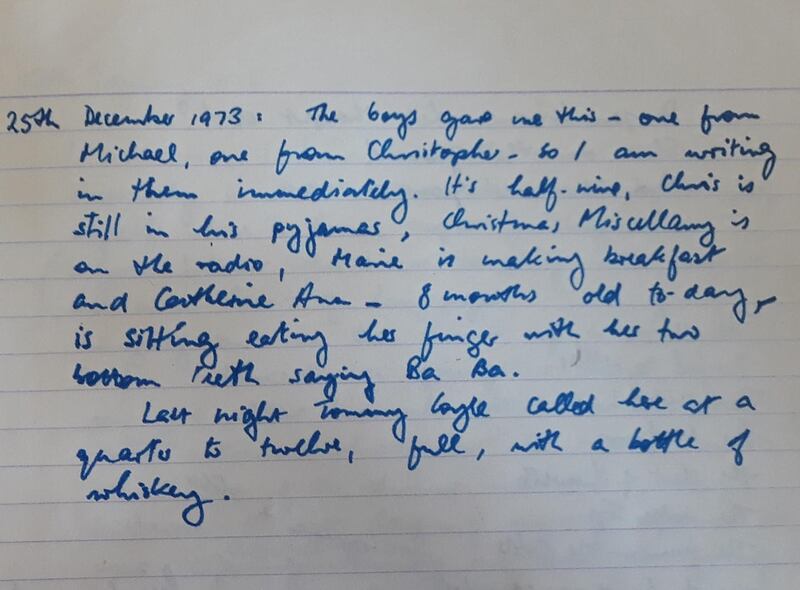 25th December 1973: The boys gave me this - one from
Michael, one from Christopher - so I am writing
in them immediately. It's half-nine, Chris is
still in his pyjamas, Christmas Miscellany is
on the radio, Marie is making breakfast
and Catherine Ann - 8 months old to-day,
is sitting eating her finger with her two
bottom teeth saying Ba Ba.
Last night Tommy called here at a
quarter to twelve, full, with a bottle of
whiskey.